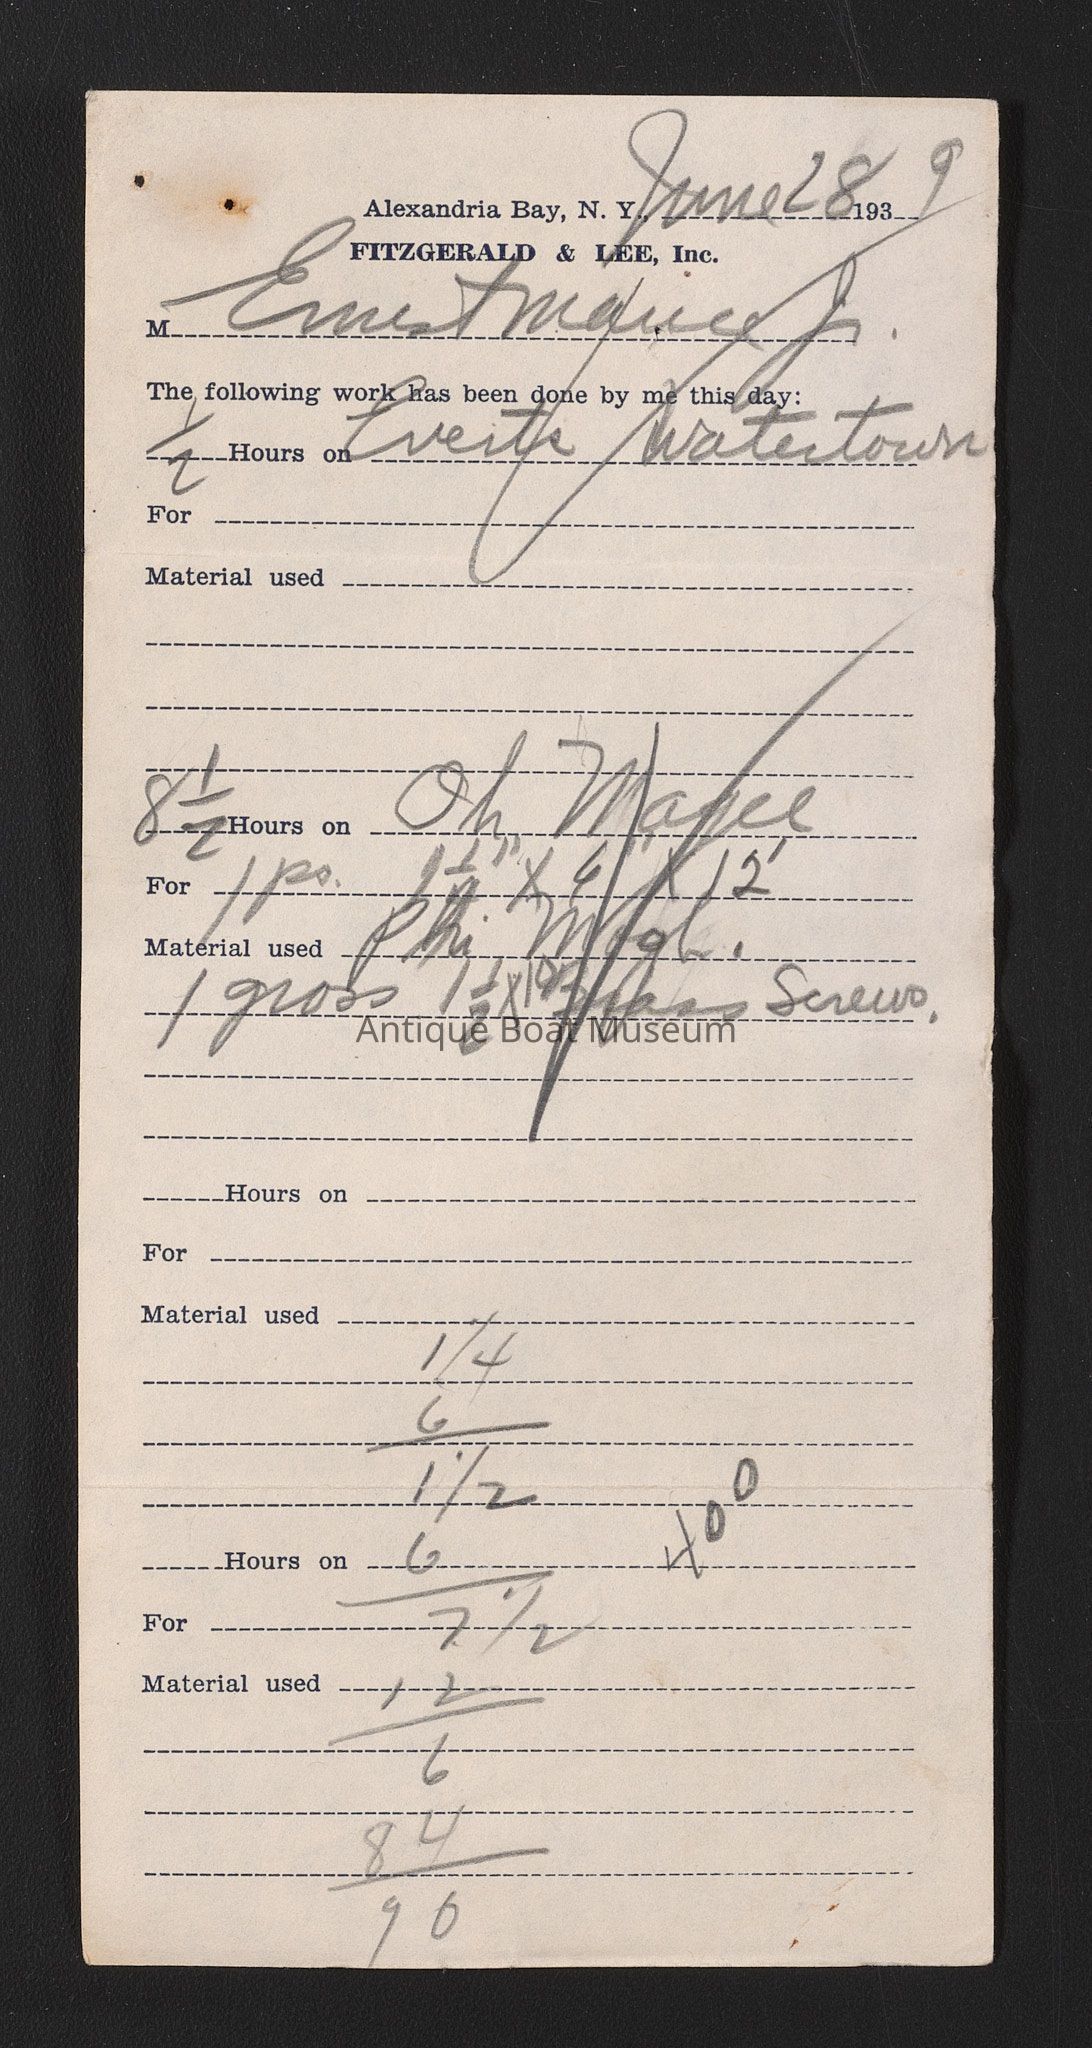 Alexandria Bay, N. Y., June 28 1939
FITZGERALD & LEE, Inc.
M Ernest Jr.
The following work has been done by me this day:
1/2 Hours on Everts Watertown
For
Material used
8 1/2 Hours on Oh, Magee
For 1 ps. 1 1/2" X 6" X 12'
Material used Phi. Mogh.
1 gross 1 1/2 X 10 Brass Screws.
Antique Boat Museum
Hours on
For
Material used
1 1/4
6
1 1/2
X00
Hours on 6
For 7 1/2
Material used 12
6
84
90